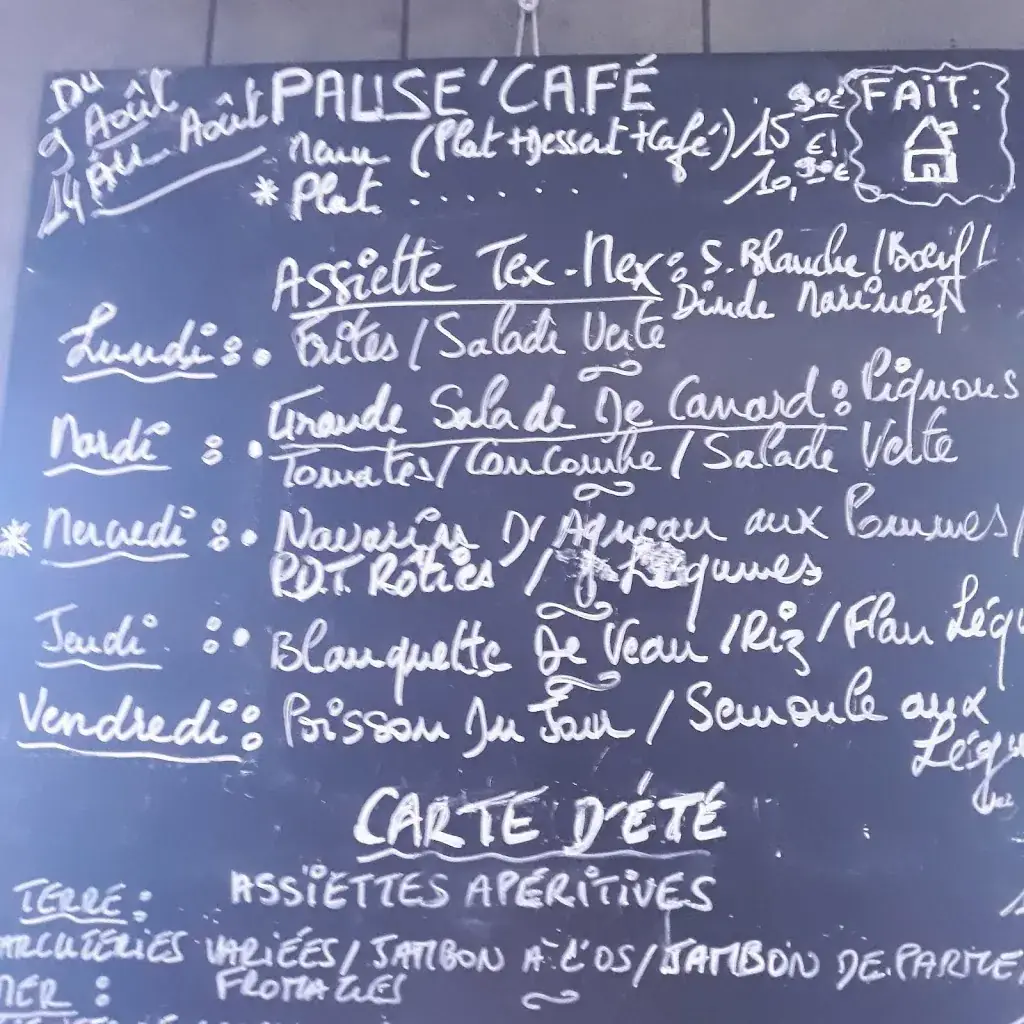 Du
9 Août
Au
14 Août
PAUSE'CAFÉ
Menu (Plat + Dessert + Café) 15,90€
€!
* Plat. . . . . . . 10,90€
FAiT:
Assiette Tex-Mex: S. Blanche / Boeuf /
Dinde Marinées
Lundi : • Frites / Salade Verte
Mardi : • Grande Salade De Canard : Pignons
Tomates / Concombre / Salade Verte
* Mercredi : • Navarin D'Agneau aux Pommes /
P.D.T. Rôties / Légumes
Jeudi : • Blanquette De Veau / Riz / Flan Légu
Vendredi : Poisson Du Jour / Semoule aux
Légu
CARTE D'ÉTÉ
TERRE : ASSIETTES APÉRITIVES
ARCUTERIES VARIÉES / JAMBON À L'OS / JAMBON DE PARME
MER : FROMAGES